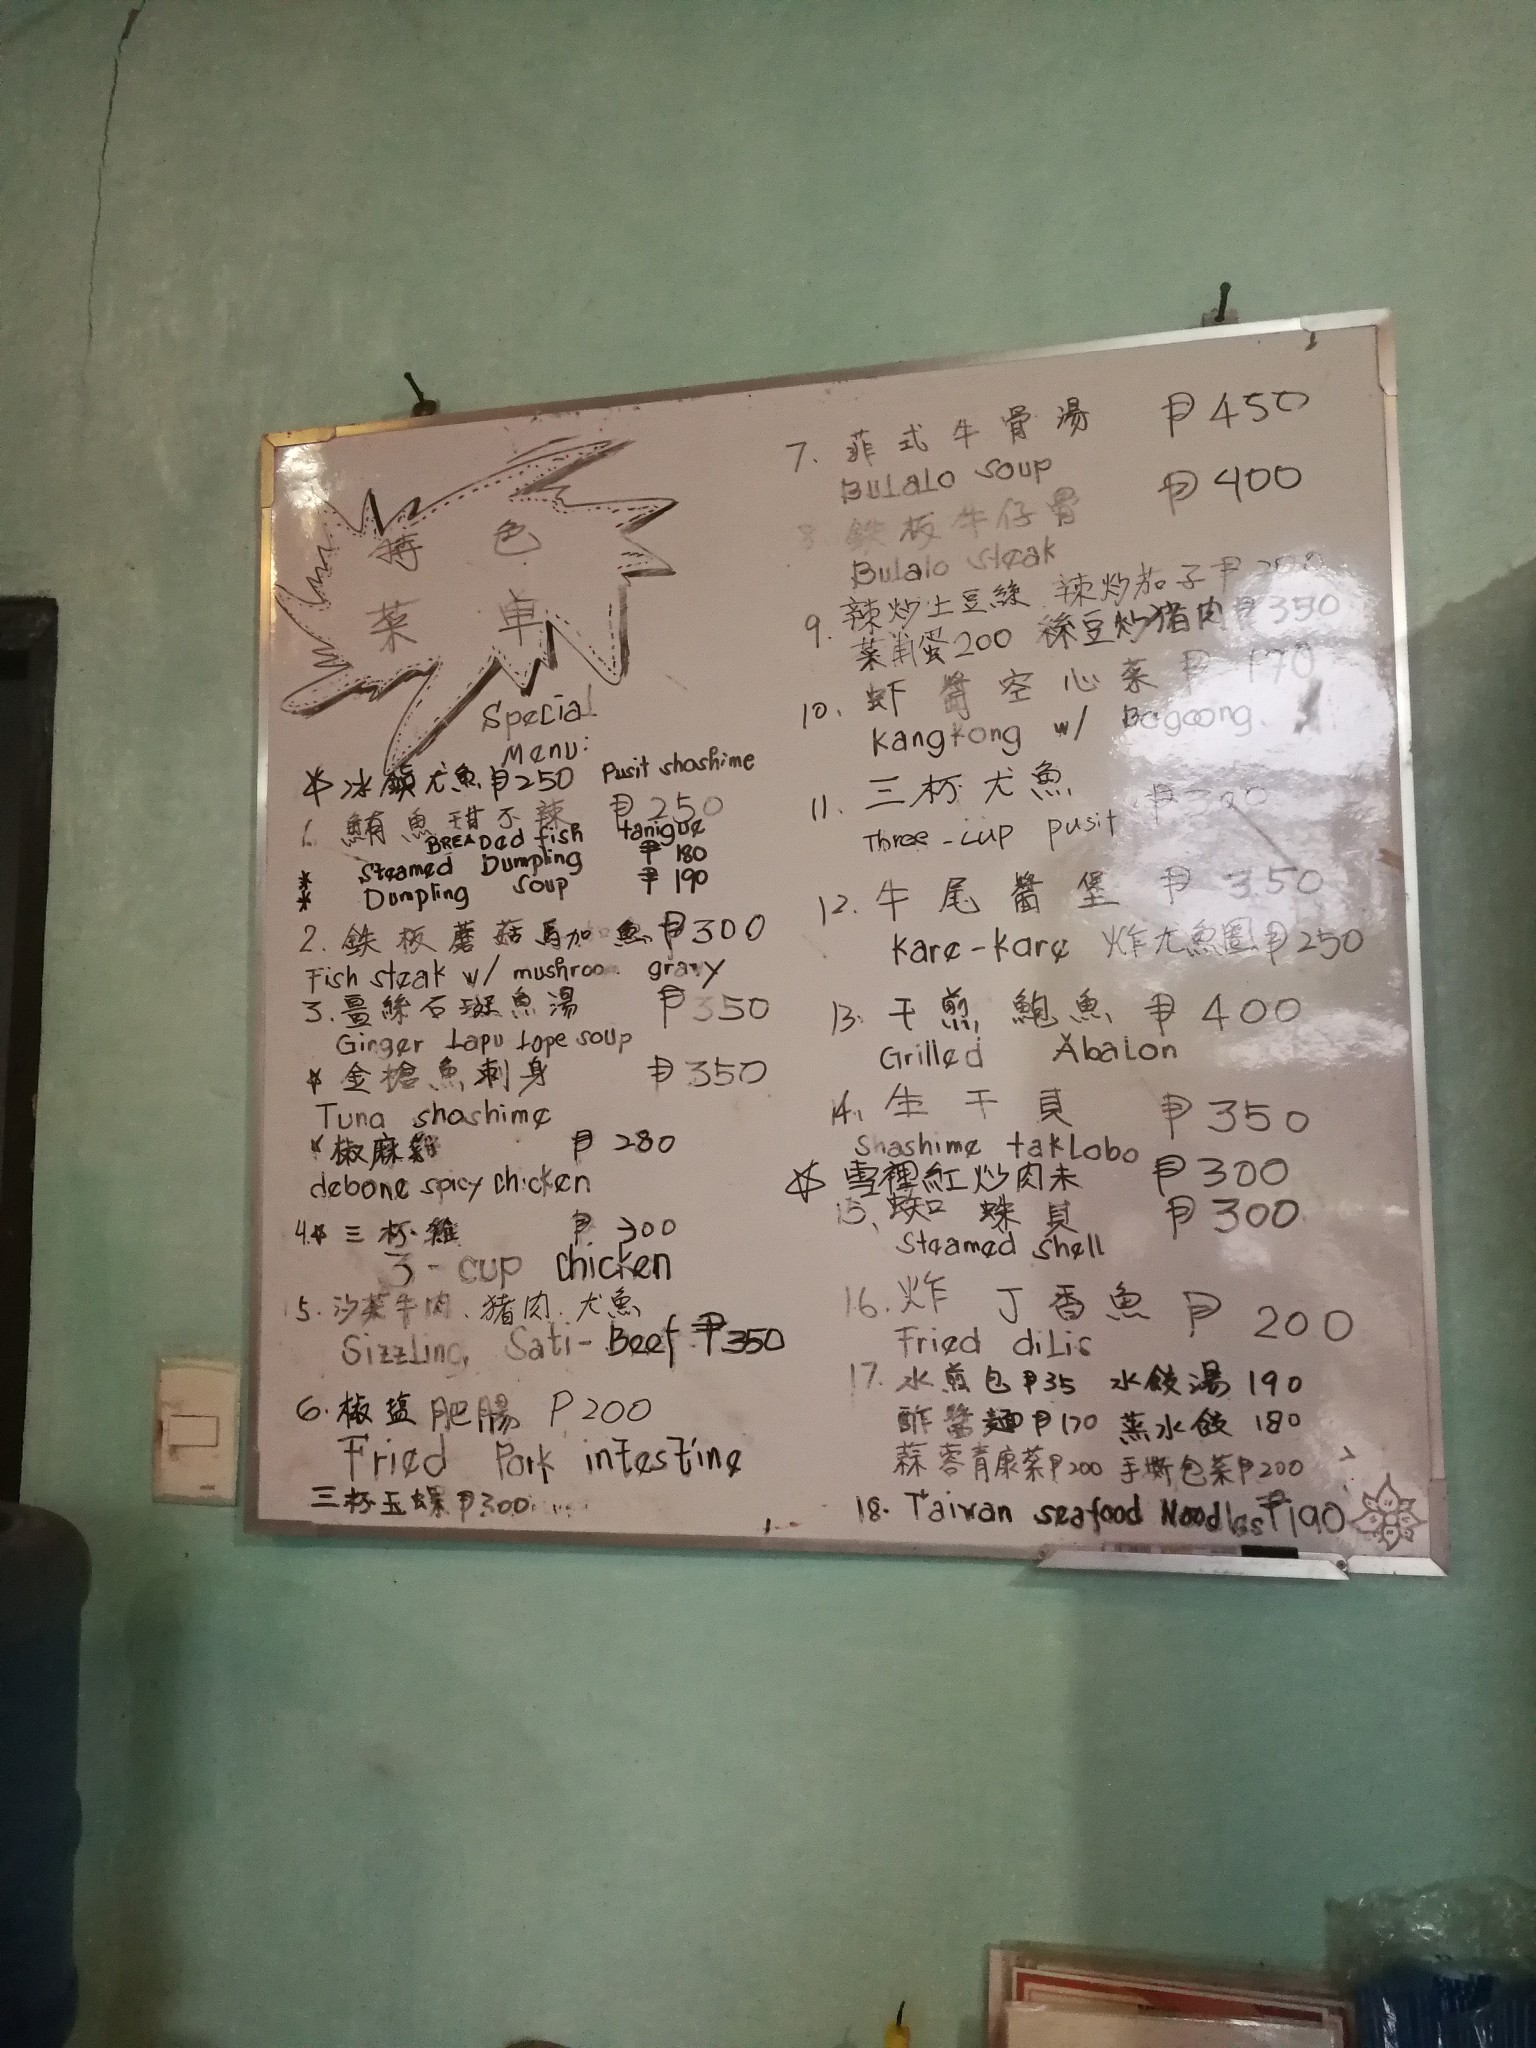 特色
菜单
Special
Menu:
☆ 冰鎮尤魚 ₱250 Pusit shashime
1. 鮪魚甜不辣 ₱250
BREADed fish tanigue
* Steamed Dumpling ₱ 180
* Dumpling Soup ₱ 190
2. 鉄板蘑菇馬加魚 ₱300
Fish steak w/ mushroo gravy
3. 薑絲石斑魚湯 ₱350
Ginger Lapu Lape soup
☆ 金槍魚刺身 ₱350
Tuna shashime
☆ 椒麻雞 ₱ 280
debone spicy chicken
4. ☆ 三杯雞 ₱ 300
3-cup chicken
5. 沙茶牛肉、猪肉、尤魚
Sizzling Sati-Beef ₱350
6. 椒盐肥腸 P200
Fried Pork intestine
三杯玉螺 ₱300
7. 菲式牛骨湯 ₱450
BuLaLo soup
8 鉄板牛仔骨 ₱400
Bulalo steak
9. 辣炒土豆絲 辣炒茄子 ₱
菜甫蛋200 豆炒猪肉 ₱350
10. 虾醬空心菜 ₱ 170
Kangkong w/ Bagoong
11. 三杯尤魚 ₱300
Three-cup pusit
12. 牛尾醬堡 ₱ 350
Kare-Kare 炸尤魚圈 ₱250
13. 干煎鮑魚 ₱400
Grilled Abalon
14. 生干貝 ₱350
Shashime takLobo
☆ 雪裡紅炒肉未 ₱300
15. 蜘蛛貝 ₱300
Steamed shell
16. 炸丁香魚 ₱ 200
Fried diLis
17. 水煎包 ₱35 水餃湯 190
酢醬麵 ₱170 蒸水餃 180
蒜蓉青康菜 ₱200 手撕包菜 ₱200
18. Taiwan seafood Noodles ₱190